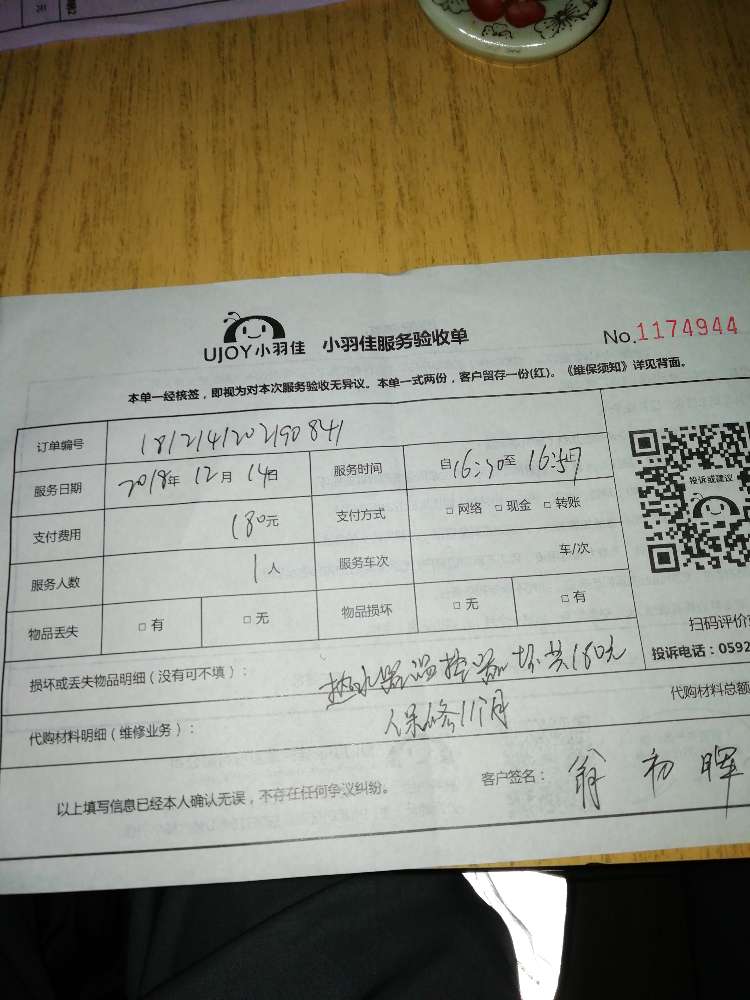 UJOY小羽佳 小羽佳服务验收单 No.1174944
本单一经核签，即视为对本次服务验收无异议。本单一式两份，客户留存一份(红)。《维保须知》详见背面。
订单编号 1812141202190841
服务日期 2018年 12月 14日 服务时间 自16:30至 16:57
支付费用 180元 支付方式 □ 网络 □ 现金 □ 转账
投诉或建议
服务人数 1人 服务车次 车/次
物品丢失 □ 有 □ 无 物品损坏 □ 无 □ 有
扫码评价
损坏或丢失物品明细（没有可不填）： 热水器温控器坏共180元
投诉电话：0592
代购材料明细（维修业务）： 保修11个月
代购材料总额
以上填写信息已经本人确认无误，不存在任何争议纠纷。 客户签名： 翁初晖